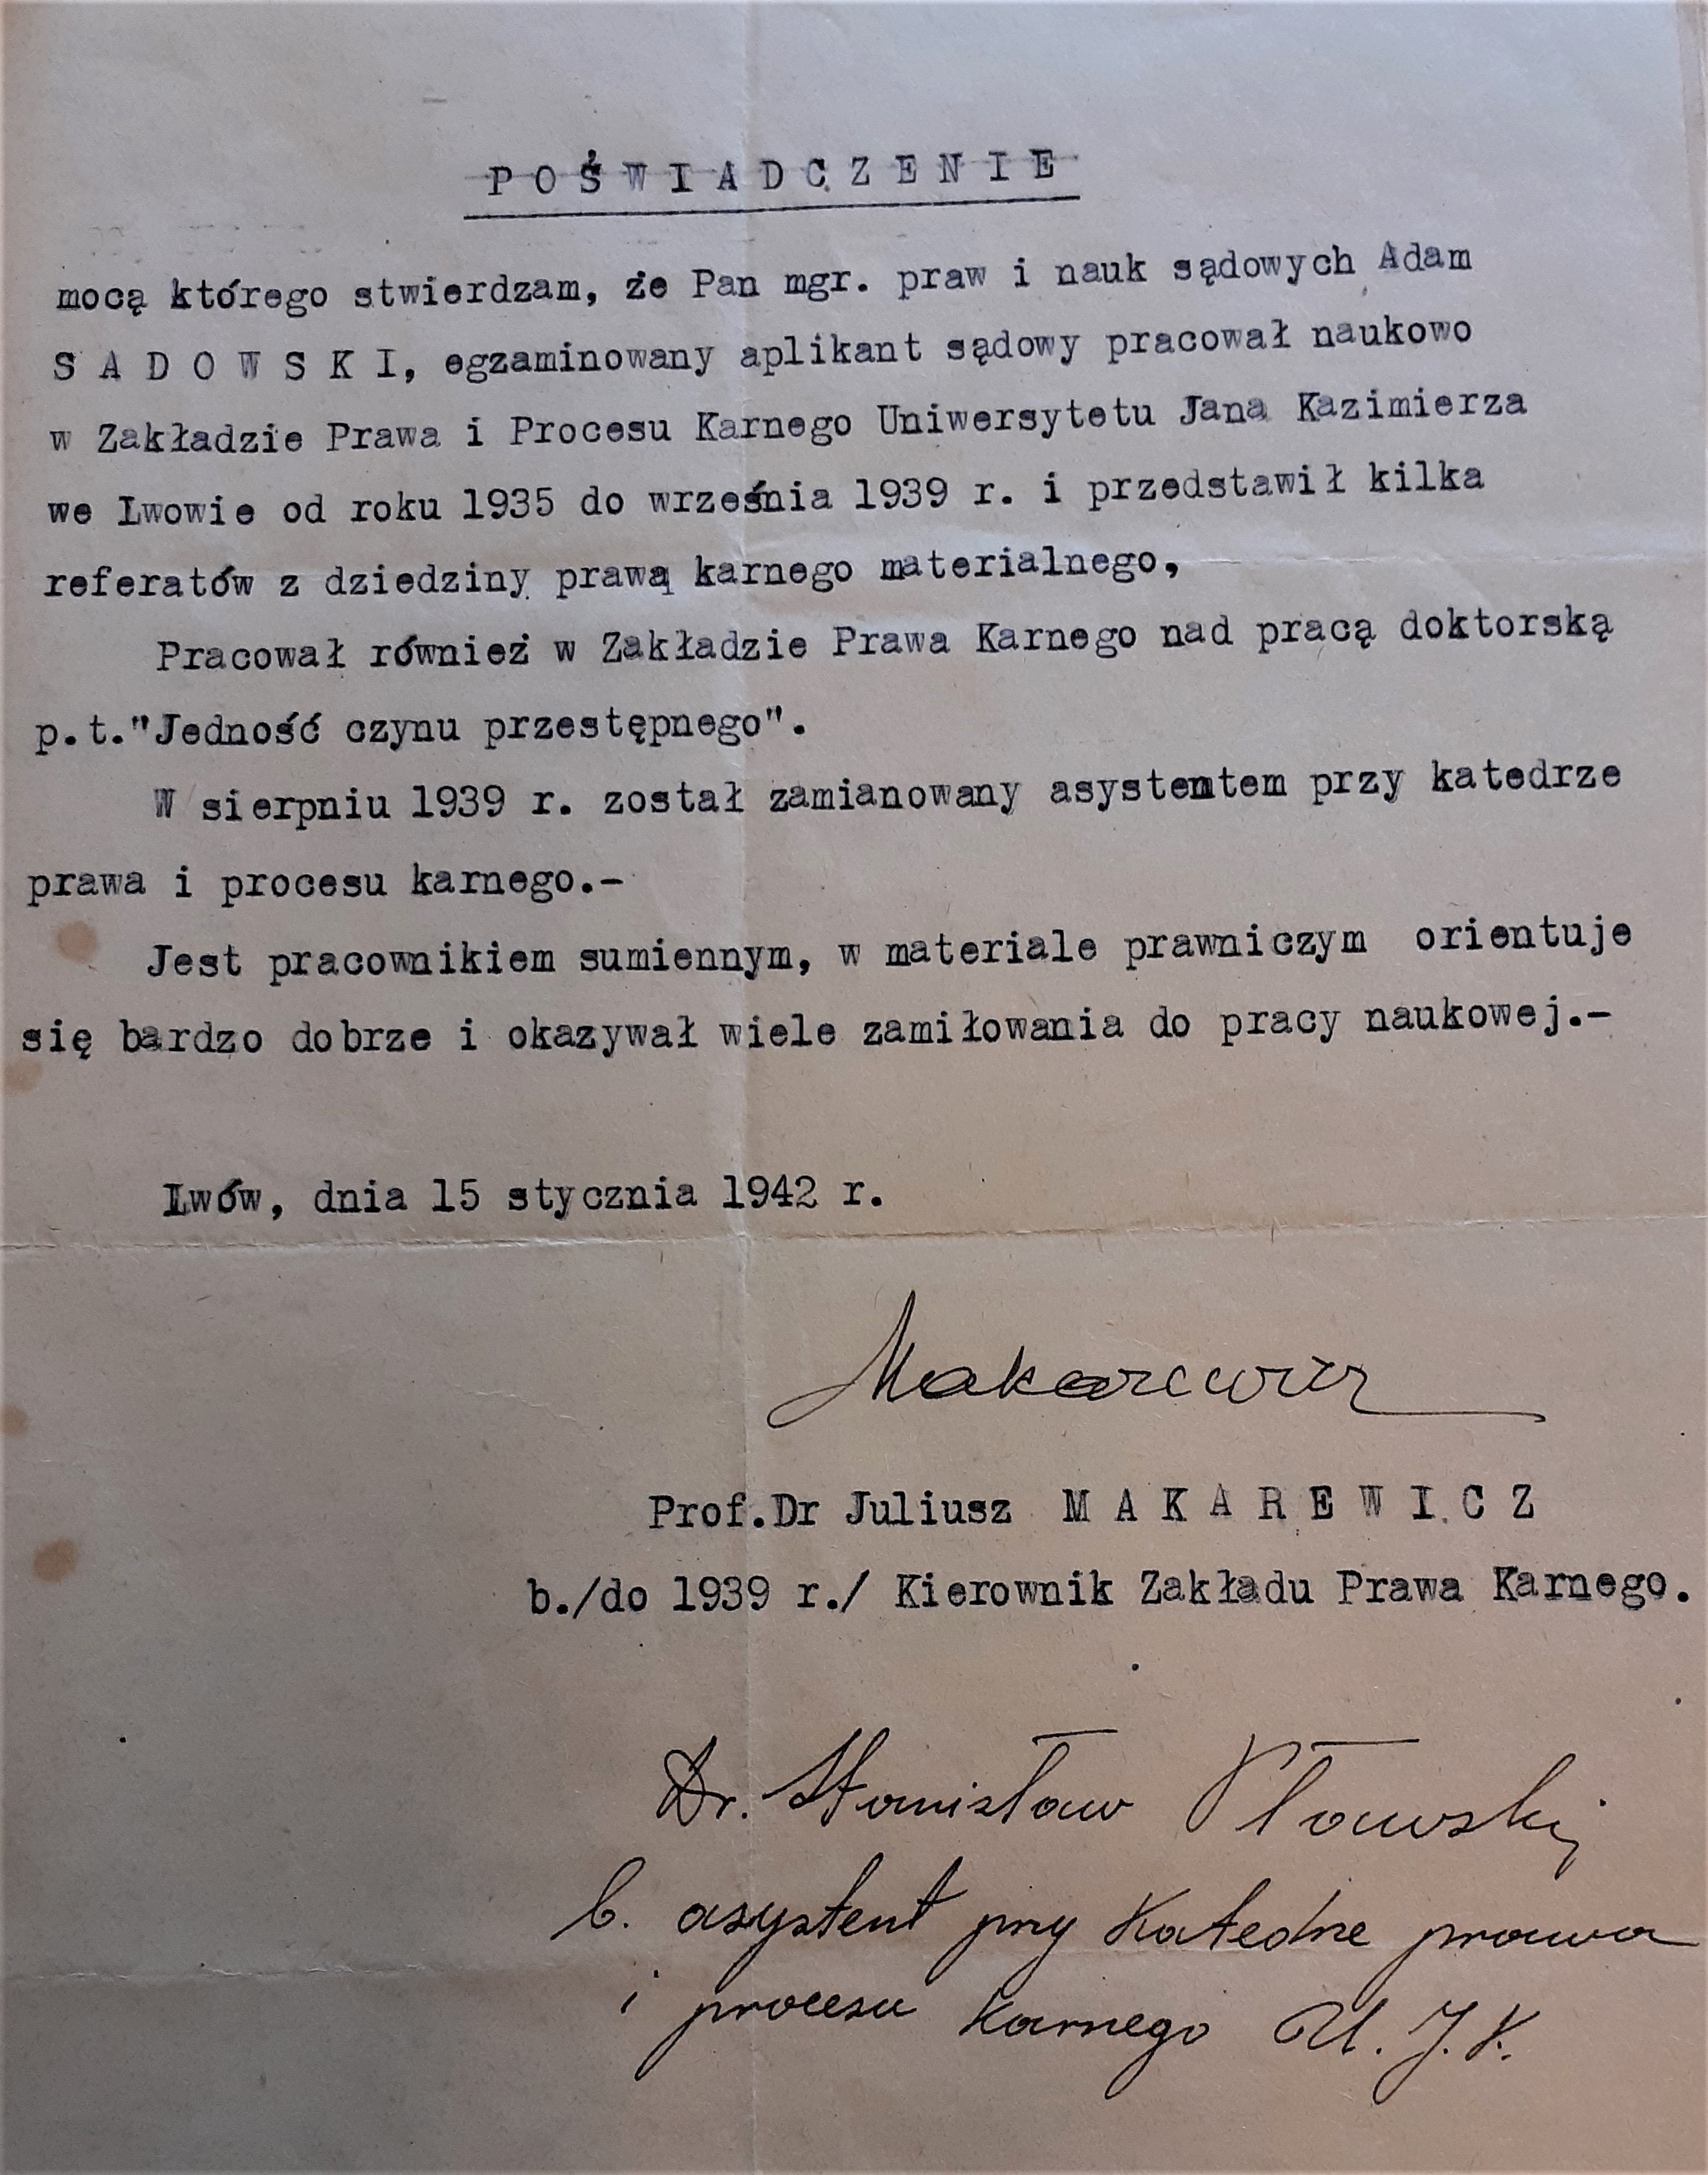 P O Ś W I A D C Z E N I E
mocą którego stwierdzam, że Pan mgr. praw i nauk sądowych Adam
S A D O W S K I, egzaminowany aplikant sądowy pracował naukowo
w Zakładzie Prawa i Procesu Karnego Uniwersytetu Jana Kazimierza
we Lwowie od roku 1935 do września 1939 r. i przedstawił kilka
referatów z dziedziny prawą karnego materialnego,
Pracował również w Zakładzie Prawa Karnego nad pracą doktorską
p.t."Jedność czynu przestępnego".
W sierpniu 1939 r. został zamianowany asystentem przy katedrze
prawa i procesu karnego.-
Jest pracownikiem sumiennym, w materiale prawniczym orientuje
się bardzo dobrze i okazywał wiele zamiłowania do pracy naukowej.-
Lwów, dnia 15 stycznia 1942 r.
Makarewicz
Prof.Dr Juliusz M A K A R E W I C Z
b./do 1939 r./ Kierownik Zakładu Prawa Karnego.
Dr. Stanisław Pławski
b. asystent przy Katedrze prawa
i procesu karnego U. J. K.